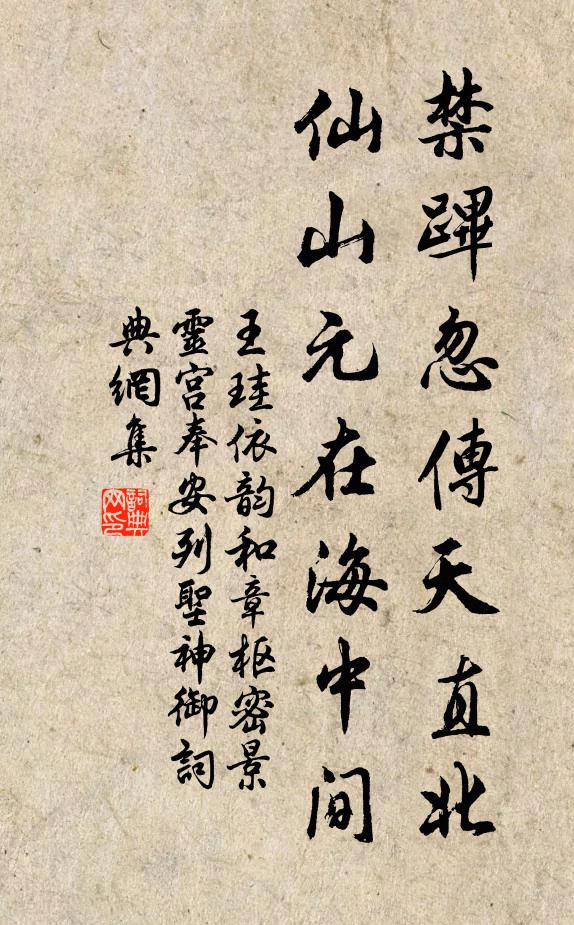 禁蹕忽傳天直北
仙山元在海中間
王珪依韵和章枢密景
靈宮奉安列聖神御詞
典網集
詞典
网印